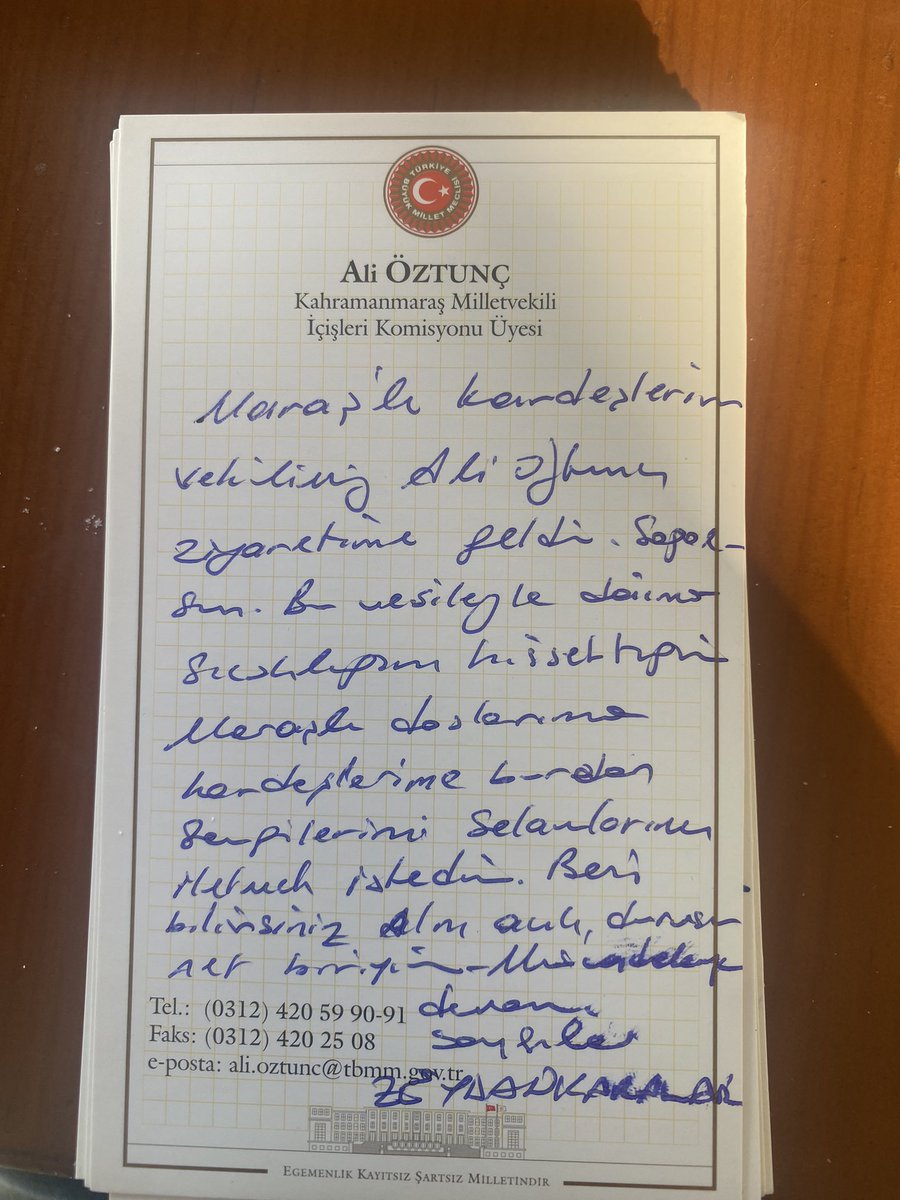 TÜRKİYE BÜYÜK MİLLET MECLİSİ
Ali ÖZTUNÇ
Kahramanmaraş Milletvekili
İçişleri Komisyonu Üyesi
Maraş'lı kardeşlerim
vekiliniz Ali Öztunç
ziyaretime geldi. Sağol-
sun. Bu vesileyle daima
sıcaklığını hissettiğim
Maraşlı dostlarıma
kardeşlerime burdan
sevgilerimi selamlarımı
iletmek istedim. Beni
bilirsiniz Alnı açık, dürüst
net biriyim. Mücadeleye
Tel.: (0312) 420 59 90-91 devam.
Faks: (0312) 420 25 08 Saygılar
e-posta: ali.oztunc@tbmm.gov.tr
ZEYDAN KARALAR
EGEMENLİK KAYITSIZ ŞARTSIZ MİLLETİNDİR